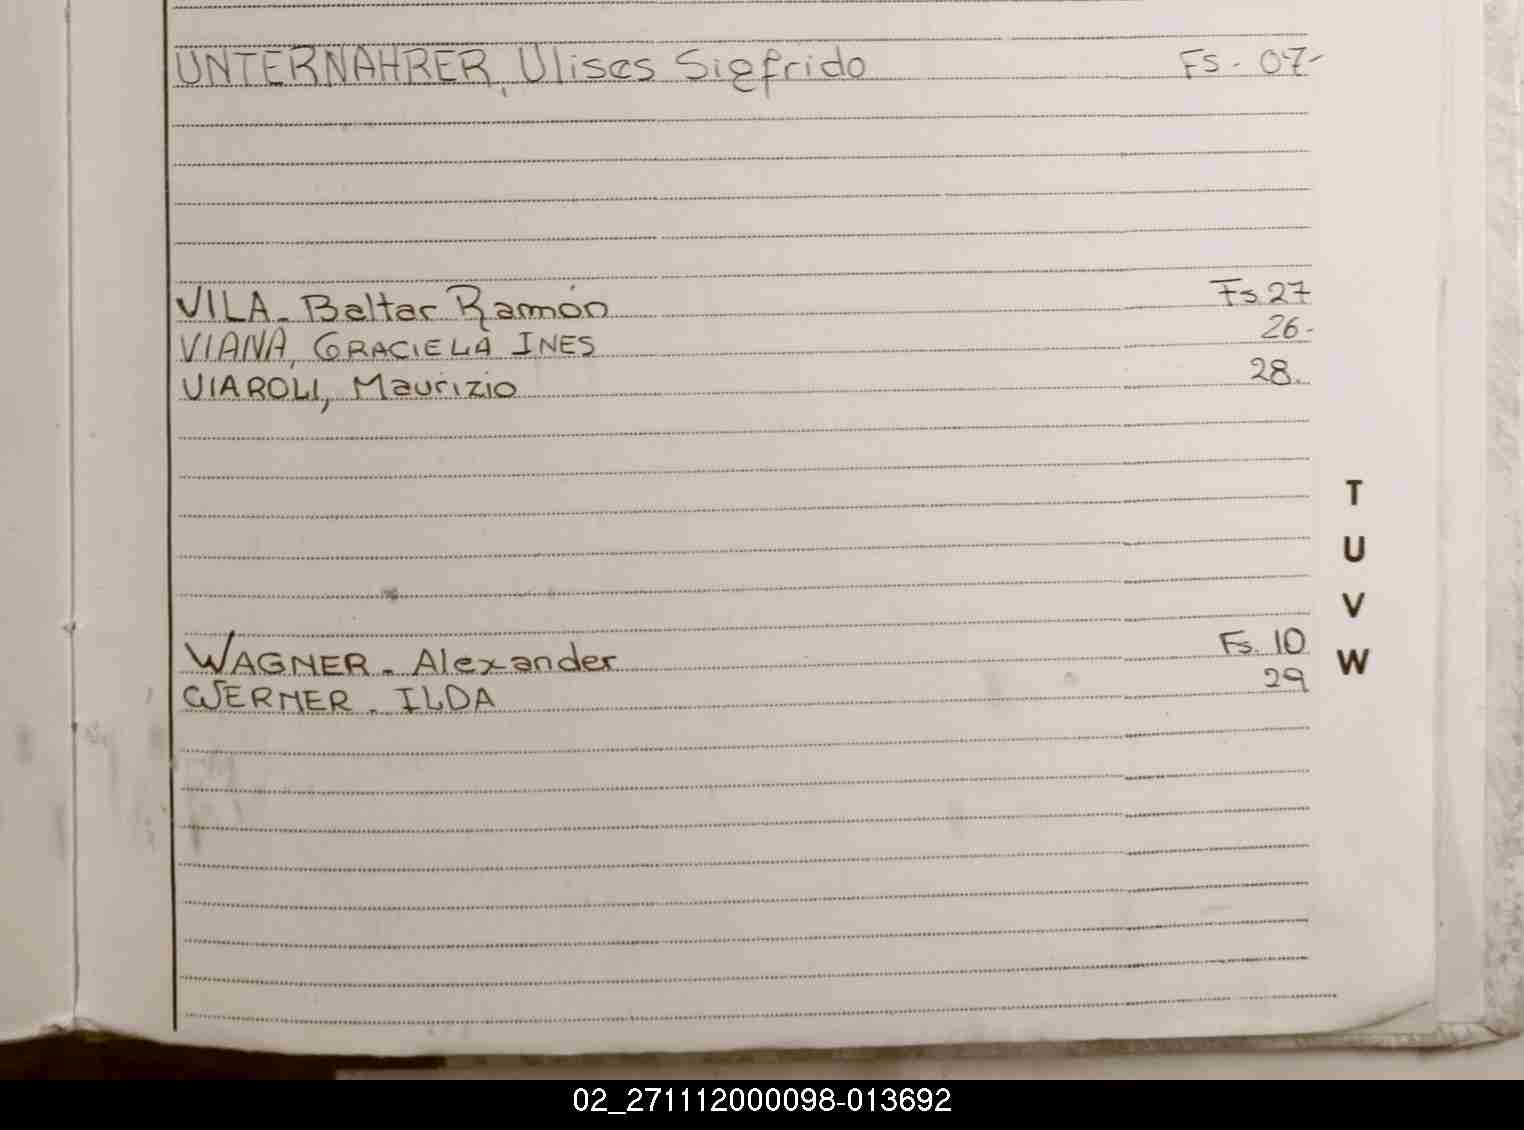 UNTERNAHRER, Ulises Sigfrido Fs. 07-
VILA - Baltar Ramón Fs. 27
VIANA, GRACIELA INES 26-
VIAROLI, Maurizio 28.
T
U
V
W
WAGNER - Alexander Fs. 10
WERNER - ILDA 29
02_271112000098-013692